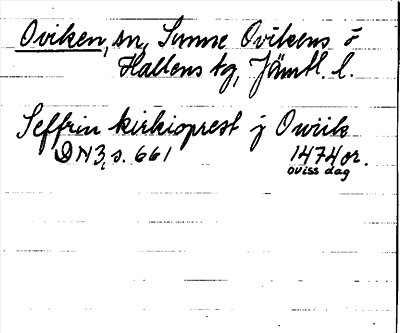 Oviken, sn, Sunne Ovikens o
Hallens tg, Jämtl. l.
Seffrin kirkioprest j Owiik
DN3, s. 661 1474 or.
oviss dag